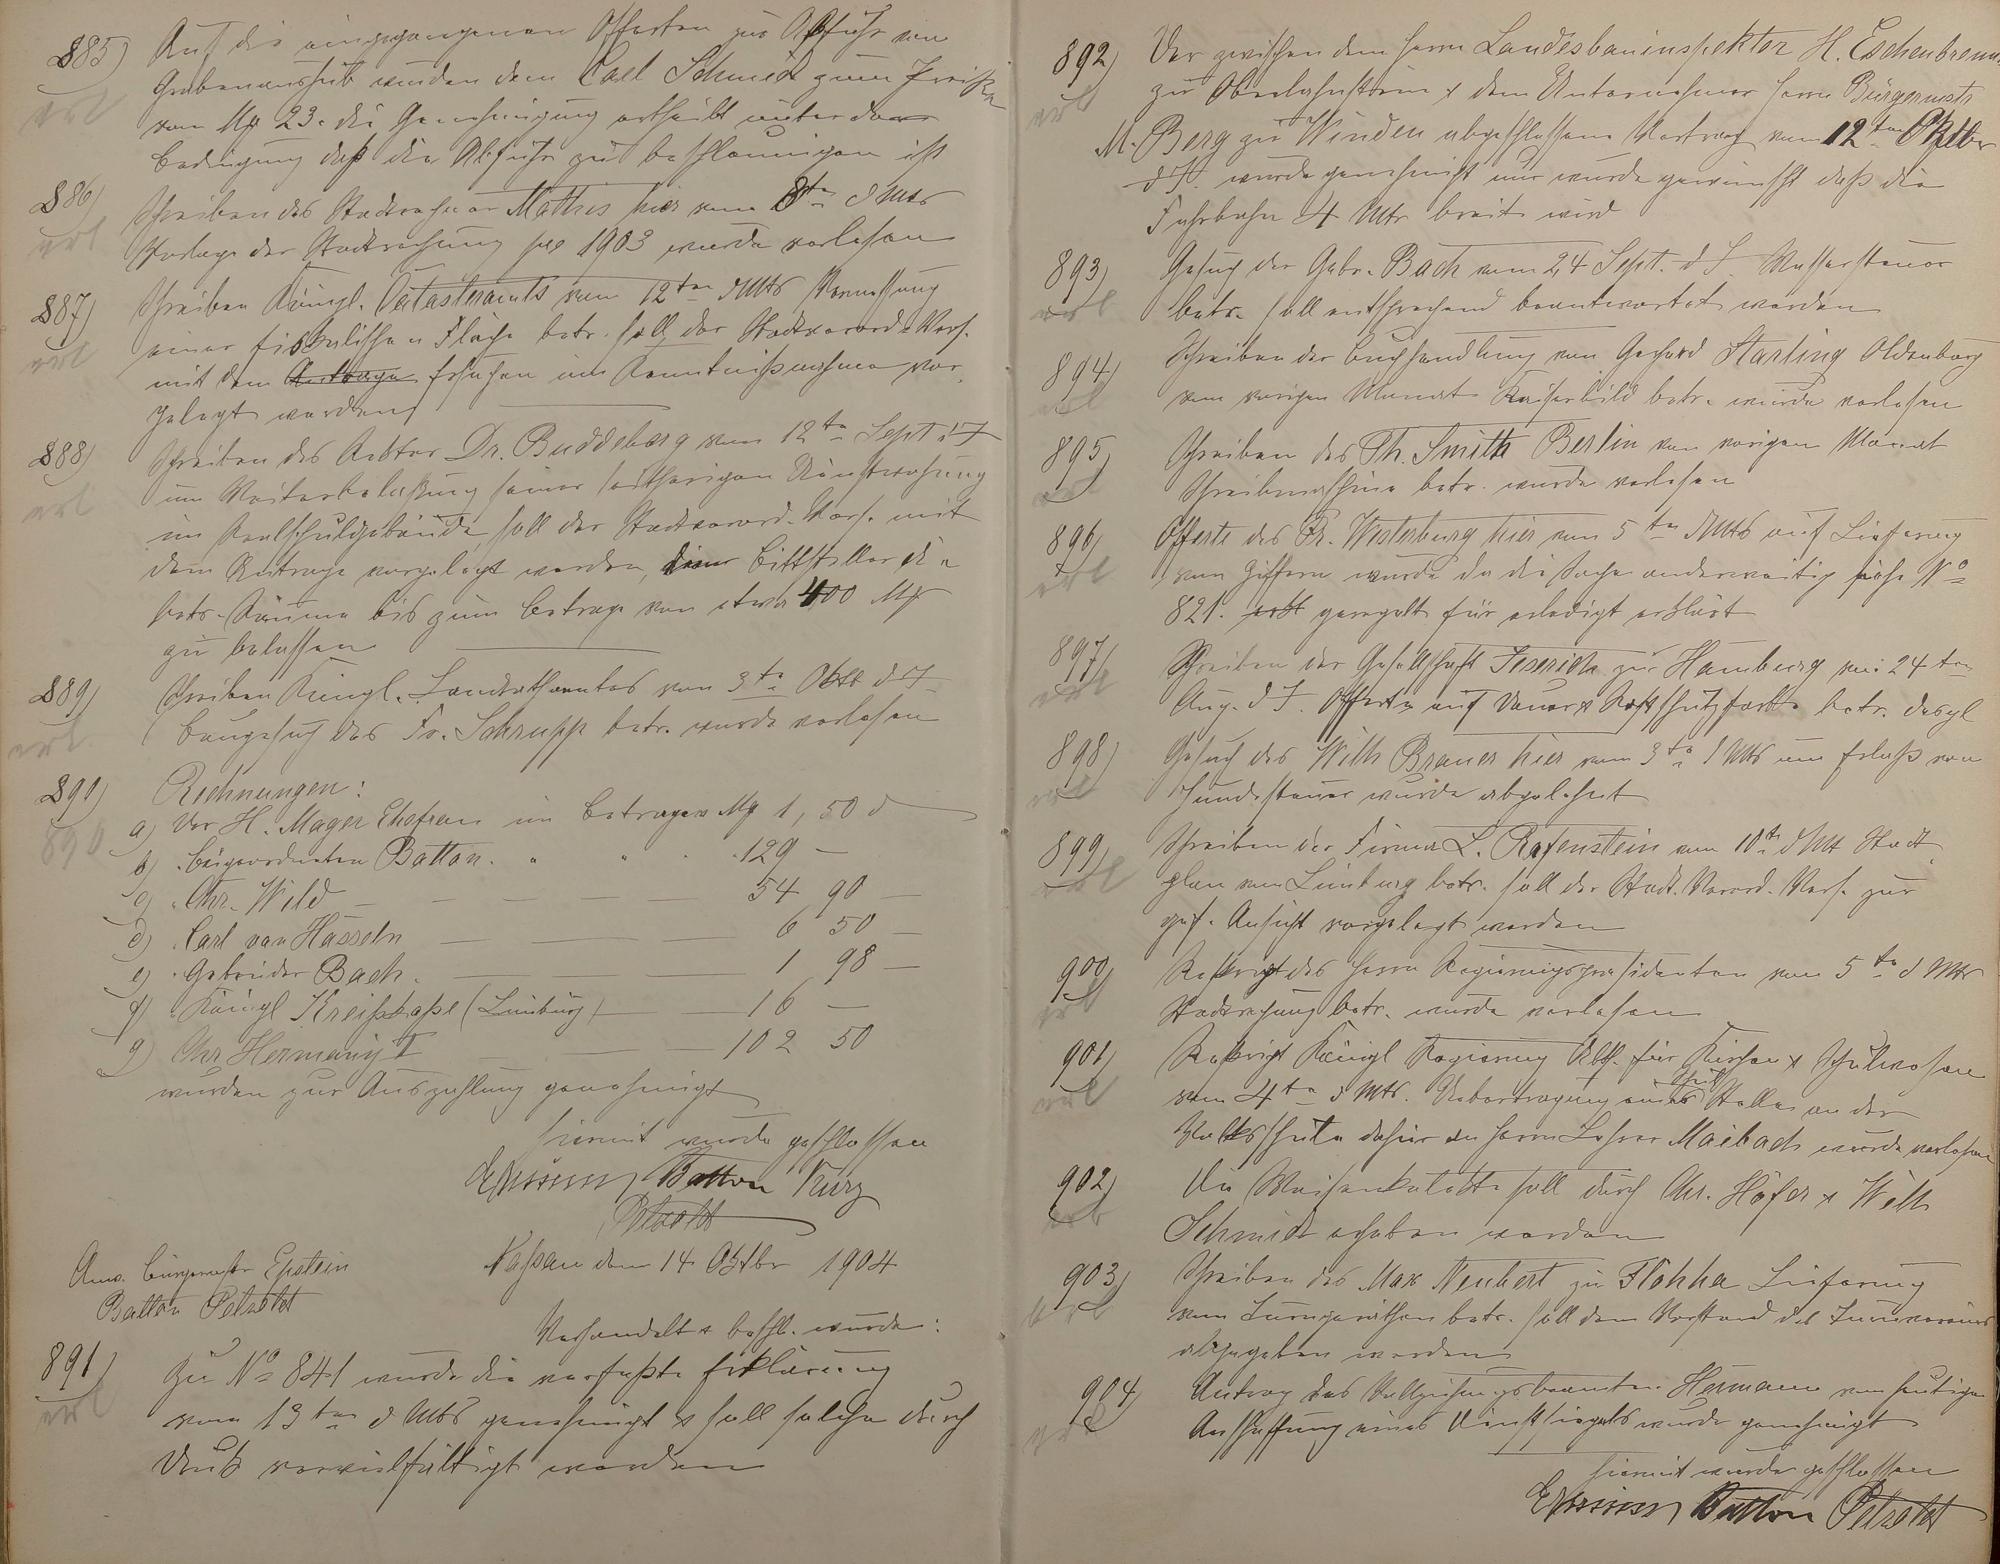 885) Auf die eingegangenen Offerten zur Abfuhr von
erl
Grabenaushub wurden dem Carl Schmidt zum Preise
von Mk 23. die Genehmigung ertheilt unter der
Bedingung daß die Abfuhr zu beschleunigen ist
886) Schreiben des Stadtrechner Mathis hier vom 8ten d Mts
erl
Vorlage der Stadtrechnung pro 1903 wurde verlesen
887) Schreiben Königl. Katasteramts vom 12ten d Mts Vermessung
erl
einer fiskalischen Fläche betr. soll der Stadtverord. Vers.
mit dem Ersuchen um Kenntnißnahme vor-
gelegt werden
888) Schreiben des Rektor Dr. Buddeberg vom 12ten Sept d J
erl
um Weiterbelaßung seiner seitherigen Dienstwohnung
im Realschulgebäude, soll der Stadtverord. Vers. mit
dem Antrage vorgelegt werden, dem Bittsteller die
betr. Räume bis zum Betrage von etwa 400 Mk
zu belassen
889) Schreiben Königl. Landrathsamtes vom 3ten Oktb d J
erl.
Baugesuch des Fr. Schrupp betr. wurde verlesen
890) Rechnungen:
890
a) Der H. Mager Ehefrau im Betrage v Mk 1,50 d
b) " Beigeordneten Batton. " " " 129 —
c) " Chr. Wild — 54 90 —
d) " Carl von Hasseln — 6 50 —
e) " Gebrüder Bach. — 1 98 —
f) " Königl Kreißkaße (Limburg) — 16 —
g) Chr Hermany I — 102 50
wurden zur Auszahlung genehmigt
Hiermit wurde geschlossen
Batton Kurz
Nassau den 14 Oktbr 1904
Anw. Bürgermstr Epstein
Batton
Verhandelt & beschl. wurde:
891) Zu No 841 wurde die verfaßte Erklärung
erl
vom 13ten d Mts genehmigt & soll solche durch
Druck vervielfältigt werden
892) Der zwischen dem Herrn Landesbauinspektor H. Eschenbrenner
erl
zu Oberlahnstein & dem Unternehmer Herrn Bürgermstr
M. Berg zu Winden abgeschlossene Vertrag vom 12ten Oktbr
d J. wurde genehmigt nur wurde gewünscht daß die
Fuhrbahn 4 Mtr breit wird
893) Gesuch der Gebr. Bach vom 24 Sept. d J. Wassersteuer
erl
betr. soll entsprechend beantwortet werden
894) Schreiben der Buchhandlung von Gerhard Starling Oldenburg
erl
vom vorigen Monat Kaiserbild betr. wurde verlesen
895) Schreiben des Th. Smith Berlin von vorigem Monat
erl
Schreibmaschine betr. wurde verlesen
896) Offerte des Fr. Westerburg hier vom 5ten d Mts auf Lieferung
erl
von Ziffern wurde da die Sache anderweitig siehe No
821. geregelt für erledigt erklärt
897) Schreiben der Gesellschaft Jeserich zu Hamburg vom 24ten
erl
Aug. d J. Offerte auf Dauer & Rostschutzfarbe betr. desgl
898) Gesuch des Wilh Brauer hier vom 3ten d Mts um Erlaß von
erl
Hundesteuer wurde abgelehnt
899) Schreiben der Firma L. Rafenstein vom 10ten d Mt Stadt-
erl
plan von Limburg betr. soll der Stadt. Verord. Vers. zur
gef. Ansicht vorgelegt werden
900) Reskript des Herrn Regierungspräsidenten vom 5ten d Mts
erl
Stadtrechnung betr. wurde verlesen
901) Reskript Königl Regierung Abth. für Kirchen & Schulwesen
erl
vom 4ten d Mts. Uebertragung einer Schul Stelle an der
Volksschule dahier an Herrn Lehrer Maibach wurde verlesen
902) Die Waisenkolekte soll durch Chr. Höfer & Wilh
erl
Schmidt erhoben werden
903) Schreiben des Max Neubert zu Flöhha Lieferung
erl
von Turngeräthen betr. soll dem Vorstand des Turnvereins
abgegeben werden
904) Antrag des Vollziehungsbeamten Hermann vom heutigen
erl
Anschaffung eines Dienstsiegels wurde genehmigt
Hiermit wurde geschlossen
Batton